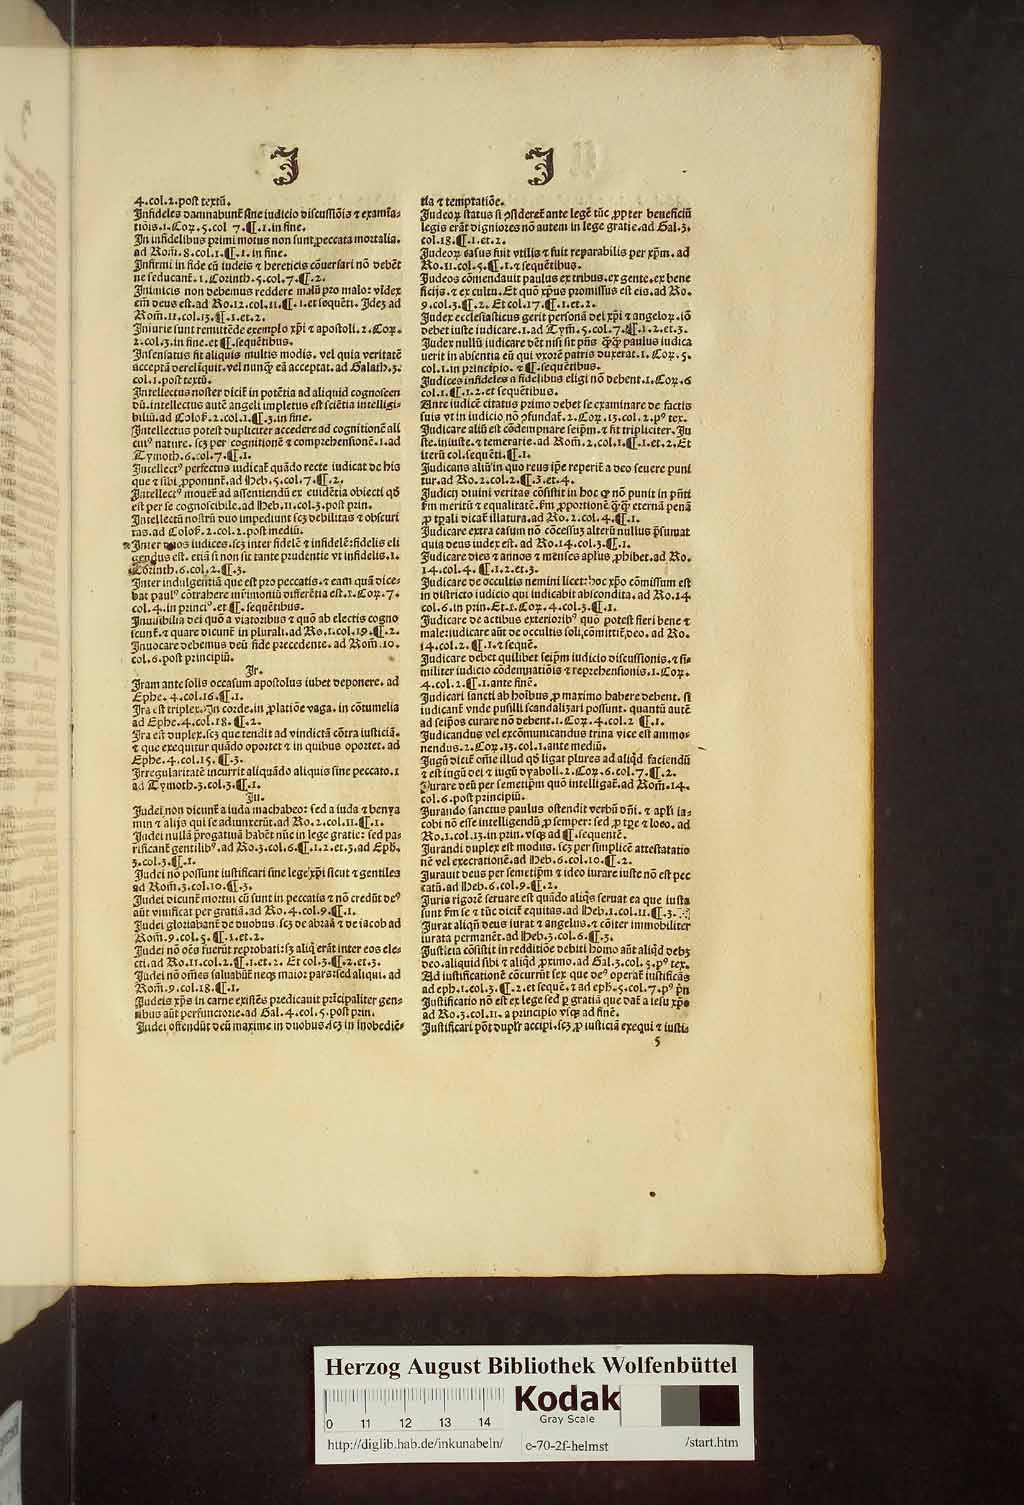 I
I
4.col.2.post textū.
Infideles damnabunt᷑ sine iudicio discussiōis ⁊ examīa-
tiōis.1.Coꝝ.5.col 7.¶.1.in fine.
In infidelibus primi motus non sunt peccata mortalia.
ad Rom̄.8.col.1.¶.1. in fine.
Infirmi in fide cū iudeis ⁊ hereticis cōuersari nō debēt
ne seducant᷑.1.Corinth.5.col.7.¶.2.
Inimicis non debemus reddere malū pro malo: vīdex
em̄ deus est.ad Ro.12.col.11.¶.1.et sequēti. Idez ad
Rom̄.11.col.13.¶.1.et.2.
Iniurie sunt remittēde exemplo xp̄i ⁊ apostoli.2.Coꝝ.
2.col.3.in fine.et ¶.sequētibus.
Insensatus fit aliquis multis modis. vel quia veritatē
acceptā derelīquit.vel nunqꝫ eā acceptat.ad Galath.3.
col.1.post textū.
Intellectus noster dicit᷑ in potētia ad aliquid cognoscen
dū.intellectus autē angeli impletus est sciētia intelligi-
biliū.ad Coloß.2.col.1.¶.3.in fine.
Intellectus potest dupliciter accedere ad cognitionē ali
cuiꝰ nature. scꝫ per cognitionē ⁊ comprehensionē.1.ad
Tymoth.6.col.7.¶.1.
Intellectꝰ perfectus iudicat᷑ quādo recte iudicat de his
que ⁊ sibi ꝓponunt᷑.ad Heb.5.col.7.¶.2.
Intellectꝰ mouet᷑ ad assentiendū ex euidētia obiecti qd̄
est per se cognoscibile.ad Heb.11.col.3.post prin.
Intellectū nostrū duo impediunt scꝫ debilitas ⁊ obscuri
tas.ad Coloß.2.col.2.post mediū.
Inter duos iudices.scꝫ inter fidelē ⁊ infidelē:fidelis eli
gendus est. etiā si non sit tante prudentie vt infidelis.1.
Corinth.6.col.2.¶.3.
Inter indulgentiā que est pro peccatis.⁊ eam quā dice-
bat paulꝰ cōtrahere mr̄imoniū differētia est.1.Coꝝ.7.
col.4.in princiꝰ.et ¶.sequētibus.
Inuisibilia dei quō a viatoribus ⁊ quō ab electis cogno
scunt᷑.⁊ quare dicunt᷑ in plurali.ad Ro.1.col.19.¶.2.
Inuocare debemus deū fide precedente.ad Rom̄.10.
col.6.post principiū.
Ir.
Iram ante solis occasum apostolus iubet deponere. ad
Ephe.4.col.16.¶.1.
Ira est triplex.In corde.in ꝓlatiōe vaga. in cōtumelia
ad Ephe.4.col.18.¶.2.
Ira est duplex.scꝫ que tendit ad vindictā cōtra iusticiā.
⁊ que exequitur quādo oportet ⁊ in quibus oportet. ad
Ephe.4.col.15.¶.3.
Irregularitatē incurrit aliquādo aliquis sine peccato.1
ad Tymoth.3.col.3.¶.1.
Iu.
Iudei non dicunt᷑ a iuda machabeo: sed a iuda ⁊ benya
min ⁊ alijs qui se adiunxerūt.ad Ro.2.col.11.¶.1.
Iudei nullā p̄rogatiuā habēt nūc in lege gratie: sed pa-
rificant᷑ gentilibꝰ.ad Ro.3.col.6.¶.1.2.et.3.ad Eph.
3.col.3.¶.1.
Iudei nō possunt iustificari sine lege xp̄i sicut ⁊ gentiles
ad Rom̄.3.col.10.¶.3.
Iudei dicunt᷑ mortui cū sunt in peccatis ⁊ nō credūt deꝰ
aūt viuificat per gratiā.ad Ro.4.col.9.¶.1.
Iudei gloriabant᷑ de duobus .scꝫ de abraā ⁊ de iacob ad
Rom̄.9.col.5.¶.1.et.2.
Iudei nō oēs fuerūt reprobati:sꝫ aliq̄ erāt inter eos ele-
cti.ad Ro.11.col.2.¶.1.et.2. Et col.3.¶.2.et.3.
Iudei nō om̄es saluabūt᷑ neqꝫ maior pars:sed aliqui. ad
Rom̄.9.col.18.¶.1.
Iudeis xp̄s in carne existēs predicauit prīcipaliter gen-
tibus aūt perfunctorie.ad Gal.4.col.5.post prin.
Iudei offendūt deū maxime in duobus.scꝫ in inobediē-
tia ⁊ temptatiōe.
Iudeoꝝ status si ↄsideret᷑ ante legē tūc ꝓpter beneficiū
legis erāt digniores nō autem in lege gratie.ad Gal.3.
col.18.¶.1.et.2.
Iudeoꝝ casus fuit vtilis ⁊ fuit reparabilis per xp̄m. ad
Ro.11.col.5.¶.1.⁊ sequētibus.
Iudeos cōmendauit paulus ex tribus.ex gente.ex bene
ficijs.⁊ ex cultu. Et quō xp̄us promissus est eis.ad Ro.
9.col.3.¶.2. Et col.17.¶.1.et.2.
Iudex ecclesiasticus gerit personā dei xp̄i ⁊ angeloꝝ.iō
debet iuste iudicare.1.ad Tym̄.5.col.7.¶.1.2.et.3.
Iudex nullū iudicare dēt nisi sit pn̄s qꝫqꝫ paulus iudica
uerit in absentia eū qui vxorē patris duxerat.1.Coꝝ.5.
col.1.in principio. ⁊ ¶.sequētibus.
Iudices infideles a fidelibus eligi nō debent.1.Coꝝ.6
col.1.¶.1.2.et sequētibus.
Ante iudicē citatus primo debet se examinare de factis
suis vt in iudicio nō ↄfundat᷑.2.Coꝝ.13.col.2.pꝰ tex.
Iudicare aliū est cōdempnare seip̄m.⁊ fit tripliciter. Iu
ste.iniuste.⁊ temerarie.ad Rom̄.2.col.1.¶.1.et.2.Et
iterū col.sequēti.¶.1.
Iudicans aliū in quo reus ip̄e reperit᷑ a deo seuere puni
tur.ad Ro.2.col.2.¶.3.et.4.
Iudicij diuini veritas cōsistit in hoc ꝙ nō punit in pn̄ti
ẜm meritū ⁊ equalitatē.ẜm ꝓportionē ꝙꝙ eternā penā
ꝓ tp̄ali dicat᷑ illatura.ad Ro.2.col.4.¶.1.
Iudicare extra casum nō cōcessuꝫ alterū nullus p̄sumat
quia deus iudex est. ad Ro.14.col.3.¶.1.
Iudicare dies ⁊ annos ⁊ menses apl̄us ꝓhibet.ad Ro.
14.col.4. ¶.1.2.et.3.
Iudicare de occultis nemini licet:hoc xp̄o cōmissum est
in districto iudicio qui iudicabit abscondita.ad Ro.14
col.6.in prin.Et.1.Coꝝ.4.col.3.¶.1.
Iudicare de actibus exterioribꝰ quō potest fieri bene ⁊
male:iudicare aūt de occultis soli,cōmittit᷑,deo.ad Ro.
14.col.2.¶.1.⁊ sequē.
Iudicare debet quilibet seip̄m iudicio discussionis.⁊ si-
militer iudicio cōdemnatiōis ⁊ reprehensionis.1.Coꝝ.
4.col.2.¶.1.ante finē.
Iudicari sancti ab hoībus ꝓ maximo habere debent. si
iudicant᷑ vnde pusilli scandalizari possunt. quantū autē
ad seip̄os curare nō debent.1.Coꝝ.4.col.2 ¶.1.
Iudicandus vel excōmunicandus trina vice est ammo-
nendus.2.Coꝝ.13.col.1.ante mediū.
Iugū dicit᷑ om̄e illud qd̄ ligat plures ad aliqd̄ faciendū
⁊ est iugū dei ⁊ iugū dyaboli.2.Coꝝ.6.col.7.¶.2.
Iurare deū per semetip̄m quō intelligat᷑.ad Rom̄.14.
col.6.post principiū.
Iurando sanctus paulus ostendit verbū dn̄i. ⁊ apl̄i ia-
cobi nō esse intelligendū ꝓ semper: sed ꝓ tp̄e ⁊ loco. ad
Ro.1.col.13.in prin.vsqꝫ ad ¶.sequentē.
Iurandi duplex est modus. scꝫ per simplicē attestatatio
nē vel execrationē.ad Heb.6.col.10.¶.2.
Iurauit deus per semetip̄m ⁊ ideo iurare iuste nō est pec
catū.ad Heb.6.col.9.¶.2.
Iuris rigorē seruare est quādo aliqs seruat ea que iusta
sunt ẜm se ⁊ tūc dicit᷑ equitas.ad Heb.1.col.11.¶.3.
Iurat aliqn̄ deus iurat ⁊ angelus.⁊ cōiter immobiliter
iurata permanēt.ad Heb.3.col.6.¶.3.
Iusticia cōsistit in redditiōe debiti homo aūt aliqd debꝫ
deo.aliquid sibi ⁊ aliqd ꝓximo.ad Gal.3.col.5.pꝰ tex.
Ad iustificationē cōcurrūt sex que deꝰ operat᷑ iustificās
ad eph.1.col.3.¶.2.et sequē.⁊ ad eph.5.col.7.pꝰ pn̄
Iustificatio nō est ex lege sed ꝑ gratiā que dat᷑ a iesu xp̄o
ad Ro.3.col.11. a principio vsqꝫ ad finē.
Iustificari pōt dupl̄r accipi.scꝫ ꝓ iusticiā exequi ⁊ iusti-
5
Herzog August Bibliothek Wolfenbüttel
Kodak
Gray Scale
0 11 12 13 14
http://diglib.hab.de/inkunabeln/
e-70-2f-helmst
/start.htm